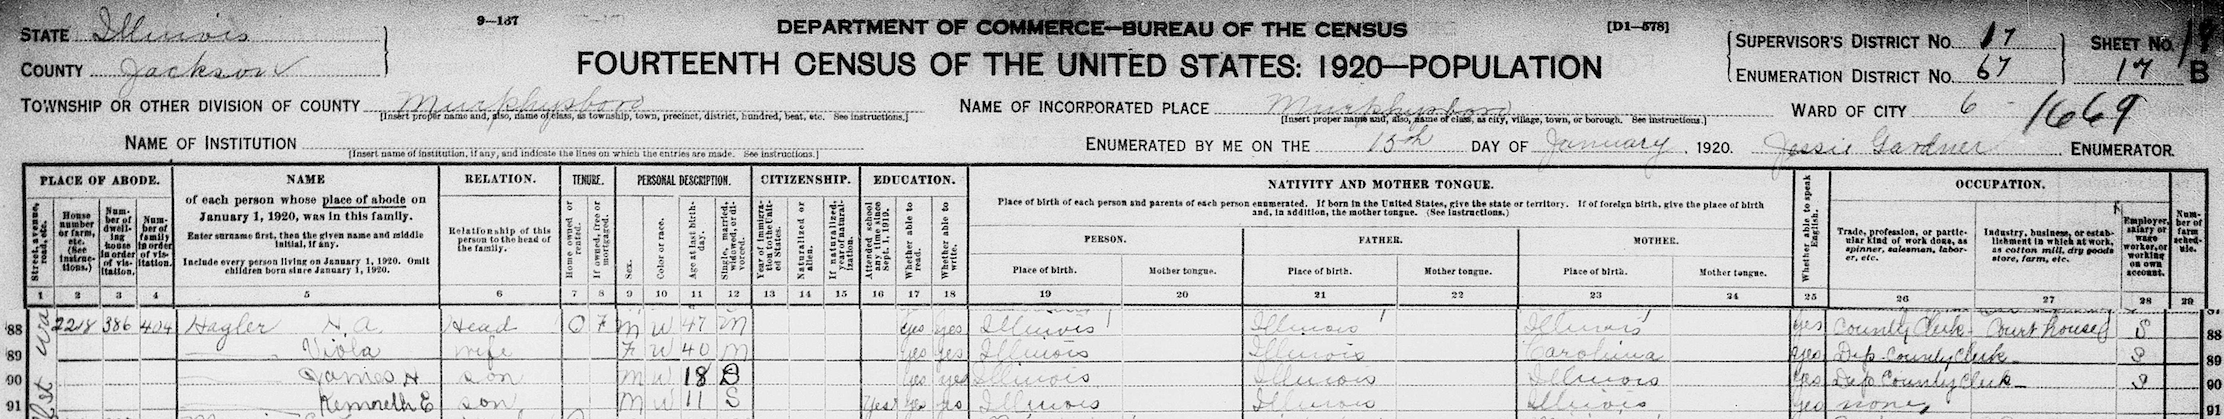 9—137
DEPARTMENT OF COMMERCE—BUREAU OF THE CENSUS
[D1—578]
STATE Illinois
COUNTY Jackson
FOURTEENTH CENSUS OF THE UNITED STATES: 1920—POPULATION
SUPERVISOR'S DISTRICT No. 17
ENUMERATION DISTRICT No. 67
SHEET No. 19
17 B
TOWNSHIP OR OTHER DIVISION OF COUNTY Murphysboro
[Insert proper name and, also, name of class, as township, town, precinct, district, hundred, beat, etc. See instructions.]
NAME OF INCORPORATED PLACE Murphysboro
[Insert proper name and, also, name of class, as city, village, town, or borough. See instructions.]
WARD OF CITY 6
1669
NAME OF INSTITUTION
[Insert name of institution, if any, and indicate the lines on which the entries are made. See instructions.]
ENUMERATED BY ME ON THE 15th DAY OF January, 1920. Jessie Gardner ENUMERATOR.
PLACE OF ABODE.
Street, avenue, road, etc.
House number or farm, etc. (See instructions.)
Number of dwelling house in order of visitation.
Number of family in order of visitation.
NAME
of each person whose place of abode on
January 1, 1920, was in this family.
Enter surname first, then the given name and middle
initial, if any.
Include every person living on January 1, 1920. Omit
children born since January 1, 1920.
RELATION.
Relationship of this
person to the head of
the family.
TENURE.
Home owned or rented.
If owned, free or mortgaged.
PERSONAL DESCRIPTION.
Sex.
Color or race.
Age at last birthday.
Single, married, widowed, or divorced.
CITIZENSHIP.
Year of immigration to the United States.
Naturalized or alien.
If naturalized, year of naturalization.
EDUCATION.
Attended school any time since Sept. 1, 1919.
Whether able to read.
Whether able to write.
NATIVITY AND MOTHER TONGUE.
Place of birth of each person and parents of each person enumerated. If born in the United States, give the state or territory. If of foreign birth, give the place of birth
and, in addition, the mother tongue. (See instructions.)
PERSON. FATHER. MOTHER.
Place of birth. Mother tongue. Place of birth. Mother tongue. Place of birth. Mother tongue.
Whether able to speak English.
OCCUPATION.
Trade, profession, or particular kind of work done, as spinner, salesman, laborer, etc.
Industry, business, or establishment in which at work, as cotton mill, dry goods store, farm, etc.
Employer, salary or wage worker, or working on own account.
Number of farm schedule.
1 2 3 4 5 6 7 8 9 10 11 12 13 14 15 16 17 18 19 20 21 22 23 24 25 26 27 28 29
88 2218 386 404 Hagler H. A. Head O F M W 47 M yes yes Illinois Illinois Illinois yes County Clerk Court house S 88
89 — Viola wife F W 40 M yes yes Illinois Illinois Carolina yes Dep County Clerk S 89
90 — James H son M W 18 yes yes Illinois Illinois Illinois yes Dep County Clerk S 90
91 — Kenneth E son M W 11 S yes yes yes Illinois Illinois Illinois yes none 91